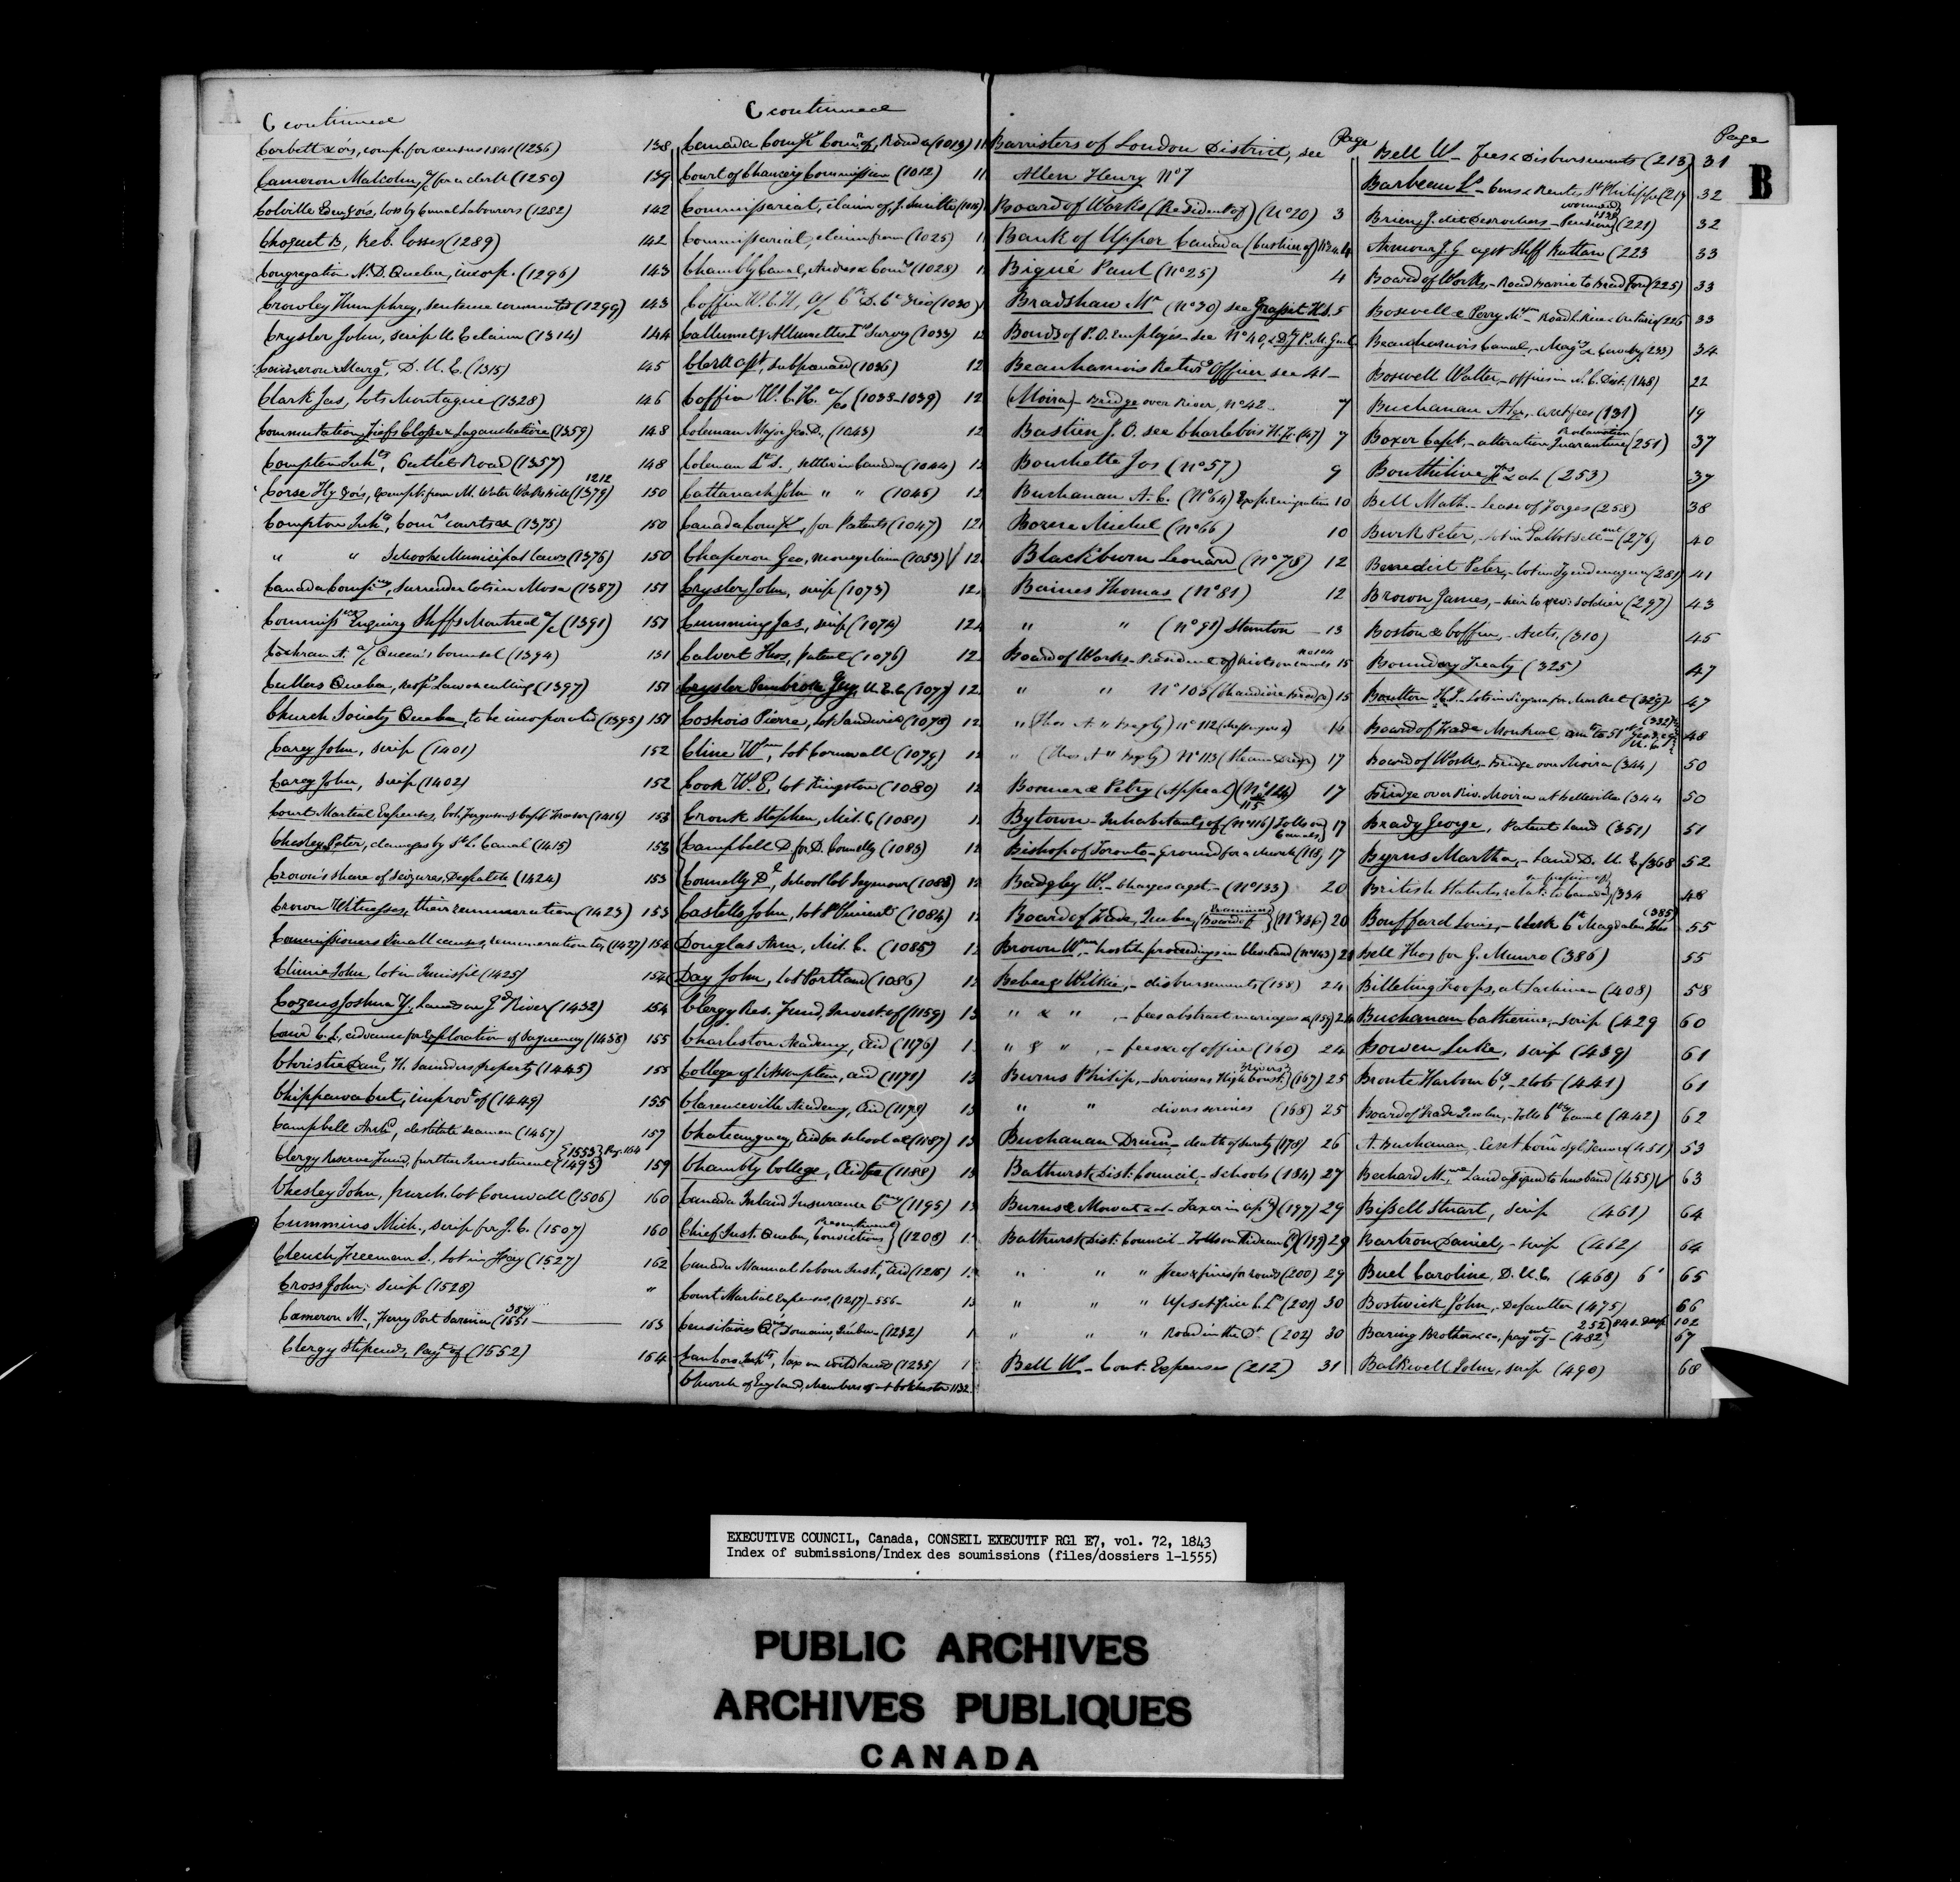 C continued
Corbett & ors, comp. for census 1841 (1236) 138
Cameron Malcolm, for a clerk (1250) 139
Colville Ben & ors, loss by Canal Labourers (1282) 142
Choquet B, Reb. losses (1289) 142
Congregation N.D. Quebec, incorp. (1296) 143
Crowley Humphrey, sentence commuted (1299) 143
Crysler John, scrip U.E claim (1314) 144
Cameron Margt, D.U.E. (1315) 145
Clark Jas, lots Montague (1328) 146
Commutation, Fiefs Closse & Lagauchetière (1359) 148
Compton Inhts, Outlet Road (1357) 148
1212
Corse Hy & ors, exempt. from M. Water Works bill (1379) 150
Compton Inhts, Comrs courts &c (1375) 150
" " Schools Municipal laws (1376) 150
Canada Compny, Surrender lots in Mosa (1387) 151
Commissrs Enquiry Sheffs Montreal a/c (1391) 151
Cochran A. a/c Queen's Counsel (1394) 151
Cullers Quebec, respg law on culling (1397) 151
Church Society Quebec, to be incorporated (1395) 151
Carey John, scrip (1401) 152
Carey John, scrip (1402) 152
Court Martial Expenses, Col. Ferguson & Capt Fraser (1416) 153
Chesley Peter, damages by St L. Canal (1415) 153
Crown's share of Seizures, Despatch (1424) 153
Crown Witnesses, their remuneration (1423) 153
Commissioners Small causes, remuneration to, (1427) 154
Clinnie John, lot in Innisfil (1425) 154
Cozens Joshua Y, lands on Gd River (1432) 154
Caird C.L, advance for Exploration of Saguenay (1438) 155
Christie Danl, H. Saunders property (1445) 155
Chippawa cut, improvt of (1449) 155
Campbell Archd, destitute seamen (1467) 157
{1553} Pag. 164
Clergy Reserve Fund, further Investment (1493) 159
Chesley John, purch. lot Cornwall (1506) 160
Cummins Mich, scrip for J.C. (1507) 160
Clench Freeman S., lot in Hay (1527) 162
Cross John, scrip (1528) "
387
Cameron M-, Ferry Port Sarnia (1551 163
Clergy Stipends, Payt of (1552) 164
C continued
Canada Compy Comn of, Roads (1013) 11
Court of Chancery Commission (1012) 11
Commissariat, claim of, J. Smith (1016) 11
Commissariat, claim from (1025) 11
Chambly Canal, Andres & Comrs (1028) 1
Coffin W.C.H, a/c (1030)
Callumet & Allumettes Id Survey (1033) 12
Clerk asst, subpoenaed (1036) 12
Coffin W.C.H. a/cs (1033-1039) 12
Coleman Major Geo. D., (1043) 12
Coleman Lt S., settler in Canada (1044) 12
Cattanach John " " (1045) 12
Canada Compy, for Patents (1047) 121
Chaperon Geo, money claim (1053) √ 12
Crysler John, scrip (1073) 12
Cumming Jas, scrip (1074) 12
Calvert Thos, Patent (1076) 12
Crysler Pembroke Jay, U.E.C. (1077) 12
Coshois Pierre, lot Sandwich (1078) 12
Cline Wm, lot Cornwall (1079) 12
Cook W.P, lot Kingston (1080) 12
Cronk Stephen, Mil. C (1081) 1
Campbell D. for D. Connelly (1083) 12
Connelly Dl, School lot Seymour (1083) 12
Castello John, lot St Vincent (1084) 1
Douglas Arm, Mil. C. (1085) 12
Day John, lot Portland (1086) 1
Clergy Res. Fund, Invest. of (1159) 13
Charleston Academy, Aid (1176) 1
College of L'Assomption, aid (1171) 13
Clarenceville Academy, aid (1179) 1
Chateauguay, aid for school &c (1187) 13
Chambly College, Aid (1188) 13
Canada Inland Insurance Cmy (1195) 13
Presentment
Chief Just. Quebec, Convictions} (1208) 1
Canada Manual Labour Inst, aid (1215) 1
Court Martial Expenses, (1217)-556- 13
Censitaires Qns Domain, Quebec (1232) 1
Canboro Inhts, tax on wild lands (1235) 1
Church of England, Members of at Colchester 1132
Page
Barristers of London District, see
Allen Henry No 7
Board of Works (President of) (No 20) 3
Bank of Upper Canada (Cashier of) No 24 4
Bigué Paul (No 25) 4
Bradshaw Mr (No 30) see Grasset H.J. 5
Bonds of P.O. Employés- see No 40, & Dy P.M. Genl
Beauharnois Returng Officer see 41-
(Moira)- Bridge over River, No 42- 7
Bastien J.O. see Charlebois H. Jr (47) 7
Bouchette Jos (No 57) 9
Buchanan A.C. (No 64) Exp. Emigration 10
Bourne Michel (No 66) 10
Blackburn Leonard (No 78) 12
Baines Thomas (No 81) 12
" " (No 91) Stanton 13
No 104
Board of Works- President of, Riots on Canals 15
" " No 105 (Chaudière Bridge) 15
" (Thos A " Begly) No 112 15
" (Thos A " Begly) No 113 (Steam Dredge) 17
Bonner & Petry (Appeal) (No 114) 17
115
Bytown- Inhabitants of (No 116) Tolls on Canals} 17
Bishop of Toronto- Ground for a church (118) 17
Badgley W.- Charges agst.- (No 133) 20
Board of Trade, Quebec, (Examiners Board of} (No 136) 20
Brown Wm,- hostile proceedings in Cleveland (No 143) 21
Bebee & Wilkie,- disbursements (158) 24
" & " ,- fees abstract marriages &c (159) 24
" & " ,- fees &c of office (160) 24
Burns Philip,- Services as High Const. 3 Rivers} (167) 25
" " divers services (168) 25
Buchanan Drumd- death of surety (178) 26
Bathurst Dist. Council,- Schools (184) 27
Burns & Mowat Taxes in (197) 29
Bathurst Dist. Council- Tolls on Rideau Cl (199) 29
" " " fees & fines for roads (200) 29
" " " Upset price C. Ld (201) 30
" " " Road in the Dt. (202) 30
Bell W- Cont. Expenses (212) 31
Page
B
Bell W- fees & Disbursements (213) 31
Barbeau Ls- Cens & Rentes St Philippe (217 32
wounded 1838
Brien J. dit Desrochers- Pension (221) 32
Armour J.G agst Sheff Ruttan (223 33
Board of Works,- Road Barrie to Bradford (225) 33
Boswell & Perry Mssrs- Road L. Rice & Ontario (226 33
Beauharnois Canal,- Magts & Cavalry (233) 34
Boswell Walter,- offices in N.C. Dist. (148) 22
Buchanan Alex,- arct fees (131) 19
Proclamation
Boxer Capt,- alteration Quarantine (251) 37
Bouthilier Ts & als (253) 37
Bell Math.- Lease of Forges (258) 38
Burk Peter,- lot in Talbot settlemt (276) 40
Benedict Peter,- lot in Tyendenaga (281) 41
Brown James,- heir to rev: soldier (297) 43
Boston & Coffin,- Accts, (310) 45
Boundary Treaty (325) 47
Boulton H.J.- Lots in Niagara for Market (329) 47
(332)
Board of Trade Montreal, amt to 51st Geo. 3 c 9 U.C. 48
Board of Works,- Bridge over Moira (344) 50
Bridge over Riv. Moira at Belleville (344 50
Brady George, Patent Land (351) 51
Byrns Martha,- Land D.U.E. (368 52
British Statutes relatg to Canada} (334 48
(385)
Bouffard Louis,- Clerk Ct Magdalen Isles 55
Bell Thos for G. Munro (386) 55
Billeting Troops, at Lachine (408) 58
Buchanan Catherine,- scrip (429 60
Bowen Luke, scrip (439) 61
Bronte Harbour Cy,- 2 lots (441) 61
Board of Trade Quebec,- Tolls Canal (442) 62
A. Buchanan,- Asst Comr Sgl Tenure (451) 53
Bechard Mme- Land assigned to husband (455) √ 63
Bissell Stuart, scrip (461) 64
Bartron Daniel,- scrip (462) 64
Buel Caroline, D.U.E. (468) 6' 65
Bostwick John,- Defaulter (475) 66
252} 840- Desp. 102
Baring Brothers & co, paymt of- (482) 67
Balkwell John, scrip (490) 68
EXECUTIVE COUNCIL, Canada, CONSEIL EXECUTIF RG1 E7, vol. 72, 1843
Index of submissions/Index des soumissions (files/dossiers 1-1555)
PUBLIC ARCHIVES
ARCHIVES PUBLIQUES
CANADA